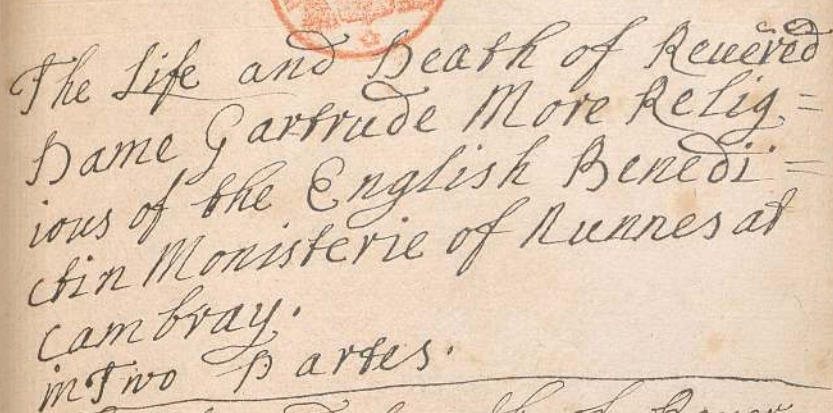 The Life and Death of Reuerēd
Dame Gartrude More Relig=
ious of the English Benedi=
ctin Monisterie of Nunnes at
Cambray.
in Two Partes.